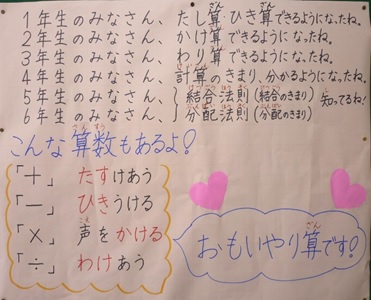 1年生のみなさん、たし算ひき算できるようになったね。
2年生のみなさん、かけ算できるようになったね。
3年生のみなさん、わり算できるようになったね。
4年生のみなさん、計算のきまり、分かるようになったね。
5年生のみなさん、結合法則(結合のきまり)
6年生のみなさん、分配法則(分配のきまり)
知ってるね!
こんな算数もあるよ!
「+」 たすけあう
「−」 ひきうける
「×」 声をかける
「÷」 わけあう
おもいやり算です!